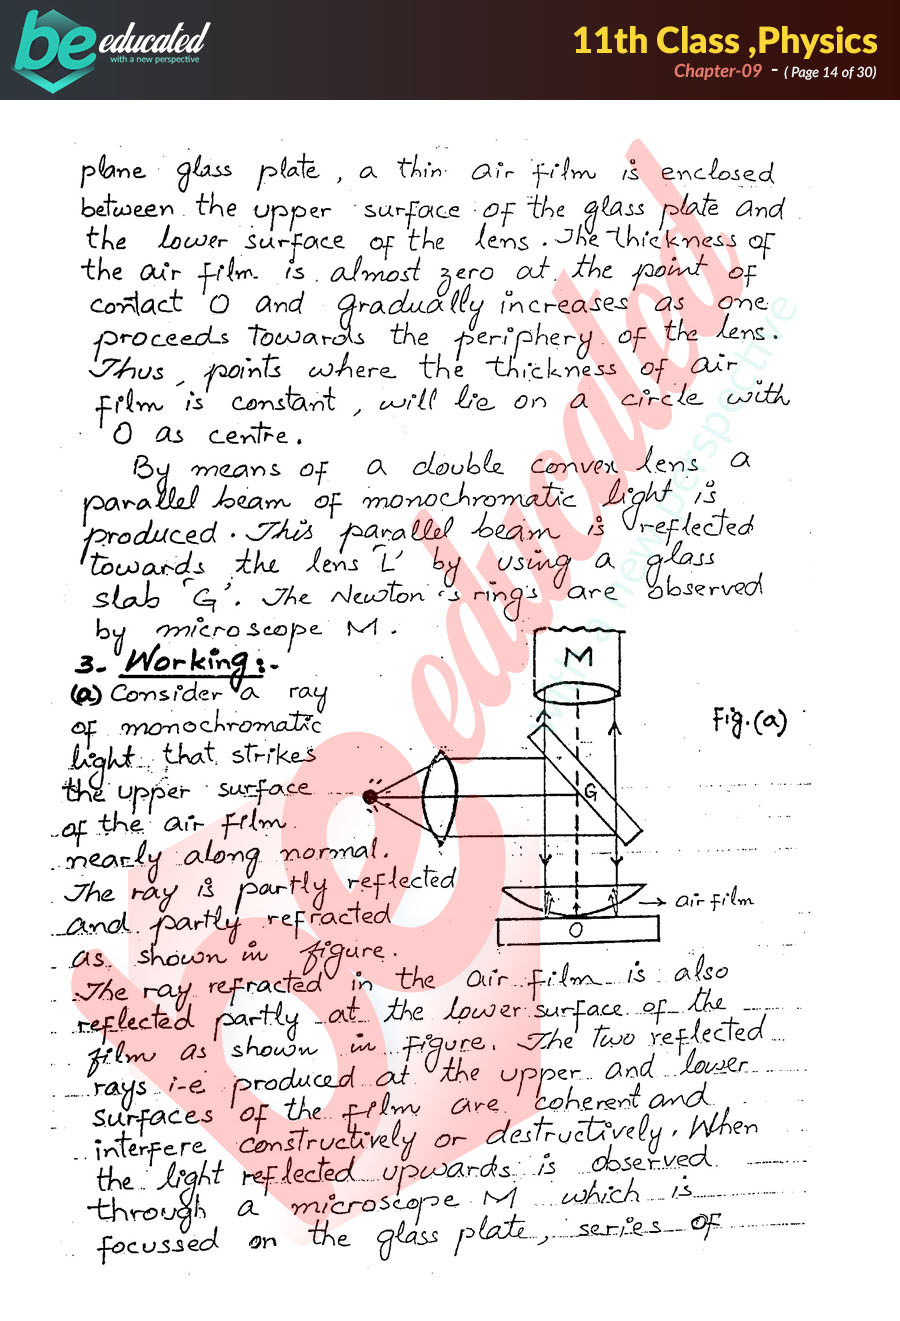 be educated
with a new perspective
11th Class ,Physics
Chapter-09 - ( Page 14 of 30)
plane glass plate, a thin air film is enclosed
between the upper surface of the glass plate and
the lower surface of the lens. The thickness of
the air film is almost zero at the point of
contact O and gradually increases as one
proceeds towards the periphery of the lens.
Thus, points where the thickness of air
film is constant, will lie on a circle with
O as centre.
By means of a double convex lens a
parallel beam of monochromatic light is
produced. This parallel beam is reflected
towards the lens 'L' by using a glass
slab 'G'. The Newton's rings are observed
by microscope M.
3- Working:-
(a) Consider a ray
of monochromatic
light that strikes
the upper surface
of the air film
nearly along normal.
The ray is partly reflected
and partly refracted
as shown in figure.
M
Fig.(a)
G
air film
O
The ray refracted in the air film is also
reflected partly at the lower surface of the
film as shown in figure. The two reflected
rays i-e produced at the upper and lower
surfaces of the film are coherent and
interfere constructively or destructively. When
the light reflected upwards is observed
through a microscope M which is
focussed on the glass plate, series of
be educated
with a new perspective